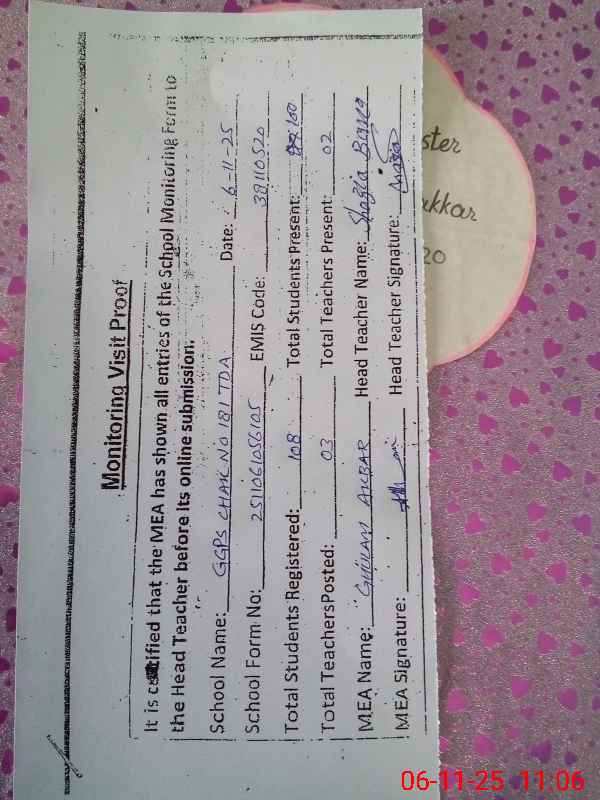 Monitoring Visit Proof
It is certified that the MEA has shown all entries of the School Monitoring Form to
the Head Teacher before its online submission.
School Name: GGPS CHAK NO 181 TDA Date: 6-11-25
School Form No: 2511061056105 EMIS Code: 38110520
Total Students Registered: 108 Total Students Present: 100
Total Teachers Posted: 03 Total Teachers Present: 02
MEA Name: GHULAM AKBAR Head Teacher Name: Shazia Bano
MEA Signature: Head Teacher Signature:
ster
kkar
20
06-11-25 11:06